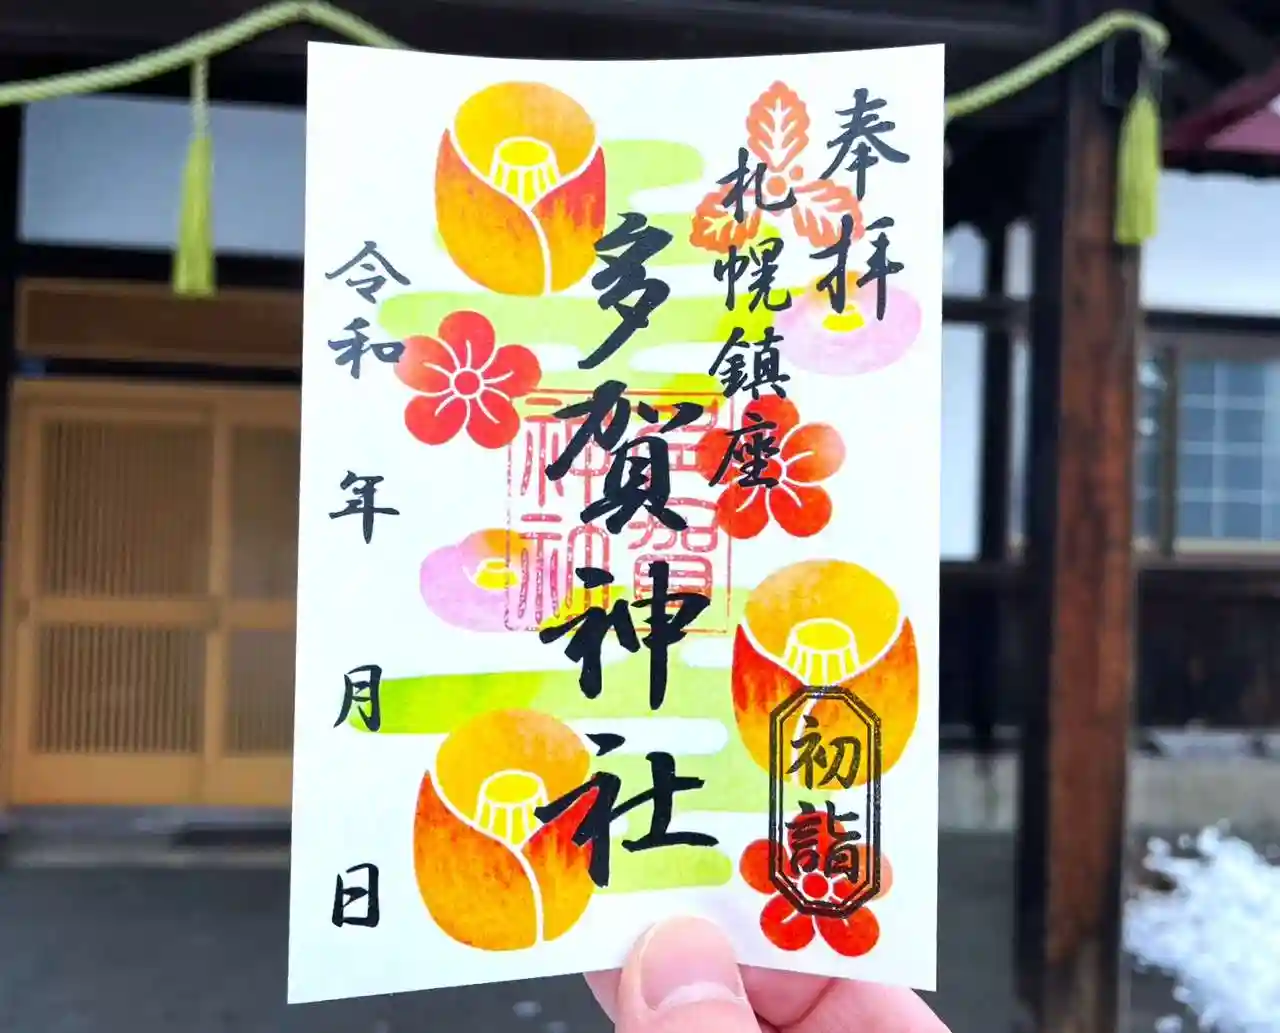 奉拝
札幌鎮座
多賀神社
多賀神社
令和 年 月 日
初詣